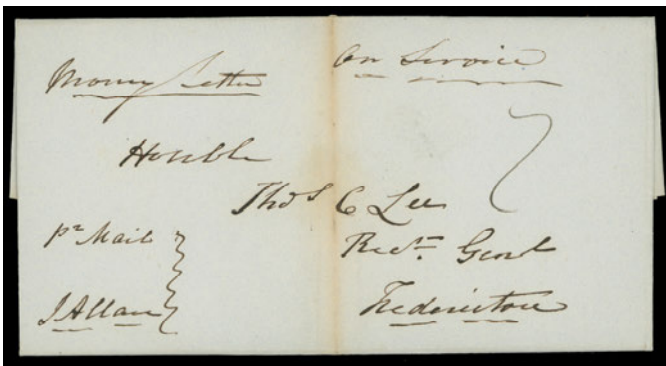 Money Letter
On Service
Honble
Thos C Lee
Recr Genl
Fredericton
pr Mail
J Allan